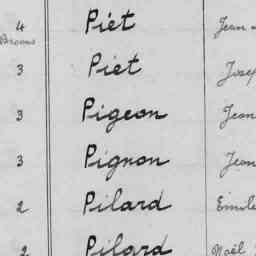 4 Piét Jean
Broons
3 Piet Josep
3 Pigeon Jean
3 Pignon Jean
2 Pilard Emile
2 Pilard Noël